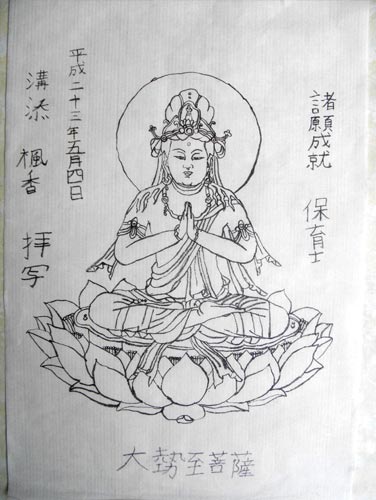 諸願成就 保育士
平成二十三年五月四日
溝添 楓香 拝写
大勢至菩薩